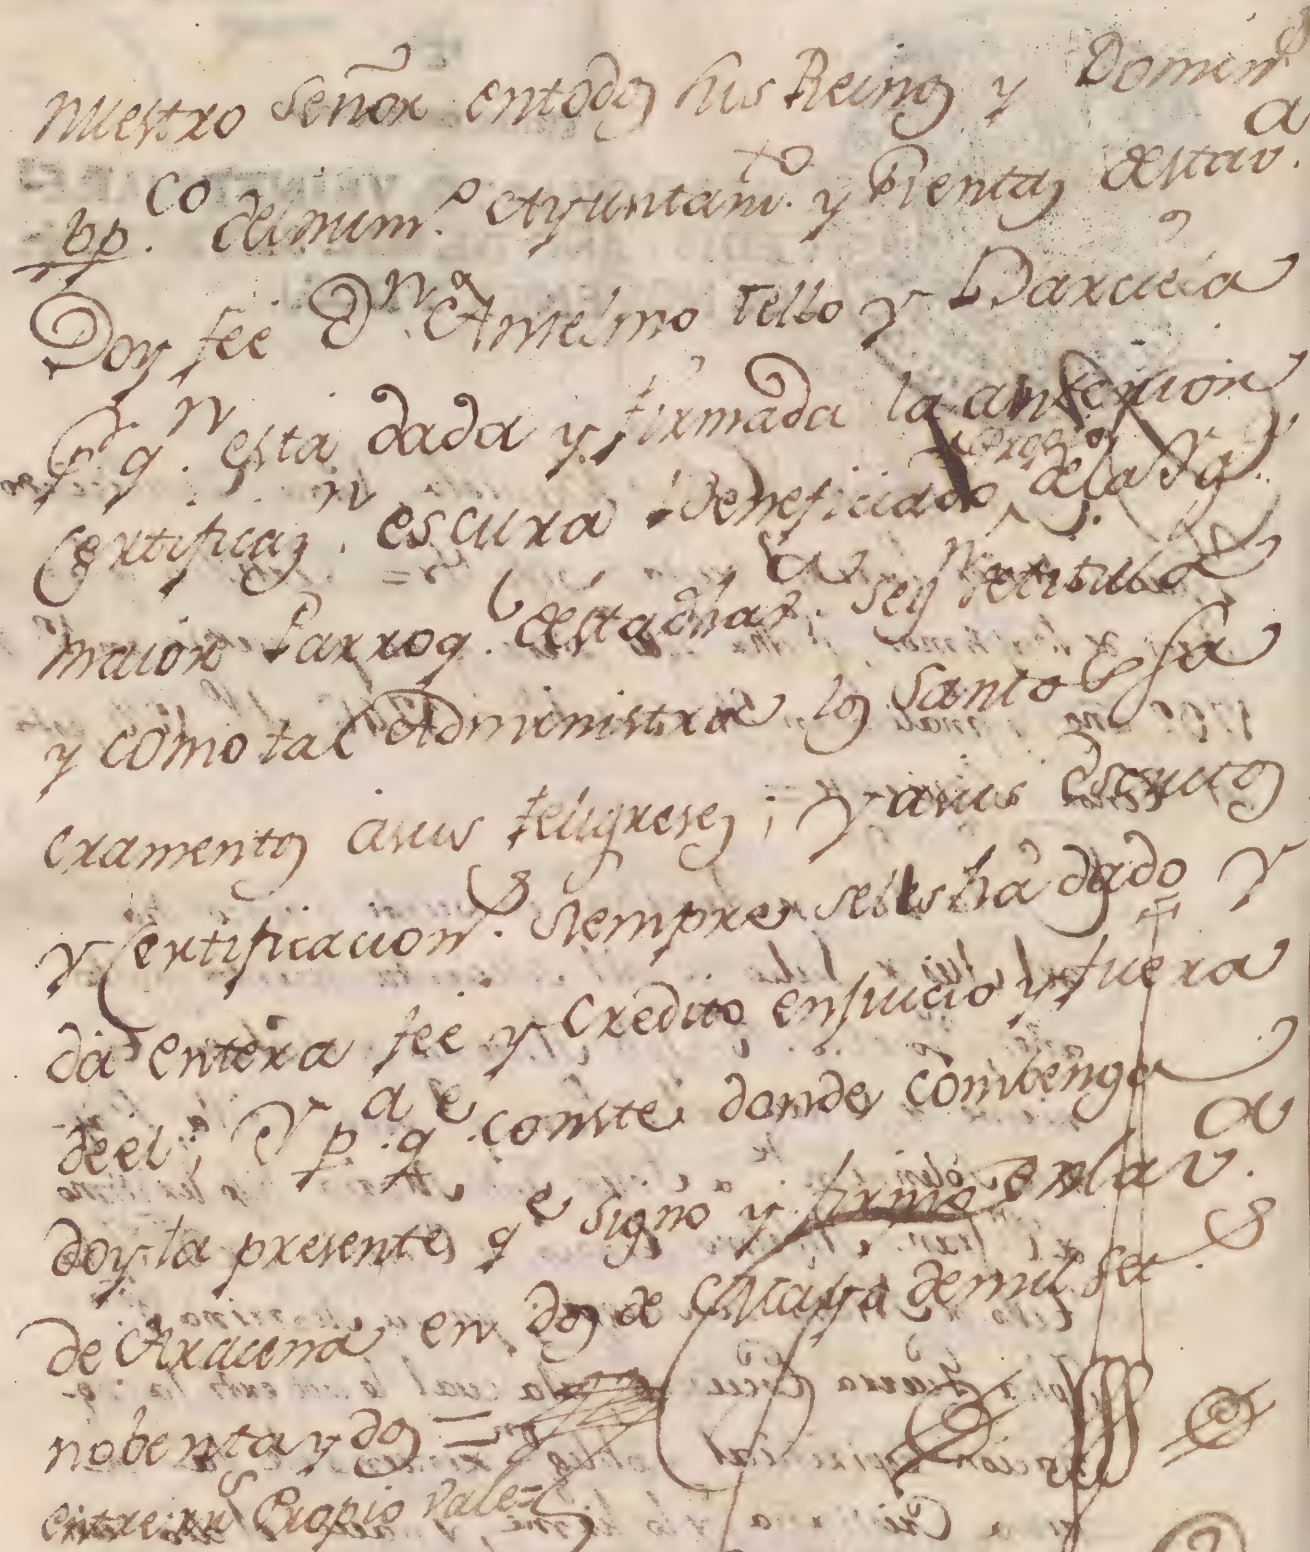 nuestro Señor entodos sus Reinos y Domin.s
pp.co del num.o Ayuntam.to y Rentas desta v.a
Doy fee D.n Anselmo Tello y Garcia
p.r q.n esta dada y firmada la anterior
Certificaz.n es cura Beneficiado propio dela Yg.a
maior Parroq.l desta dha v.a seg.n se titula
y como tal Administra los Santos Sa
cramentos asus feligreses; y asus Escritos
y Certificacion.s siempre seles ha dado y
da entera fee y Credito en juicio y fuera
de el; Y p.a q.e conste donde combenga
doy la presente q.e signo y firmo en la v.a
de Aracena en dos de de mil set.s
nobenta y dos =
entre rr.s Propio Vale =